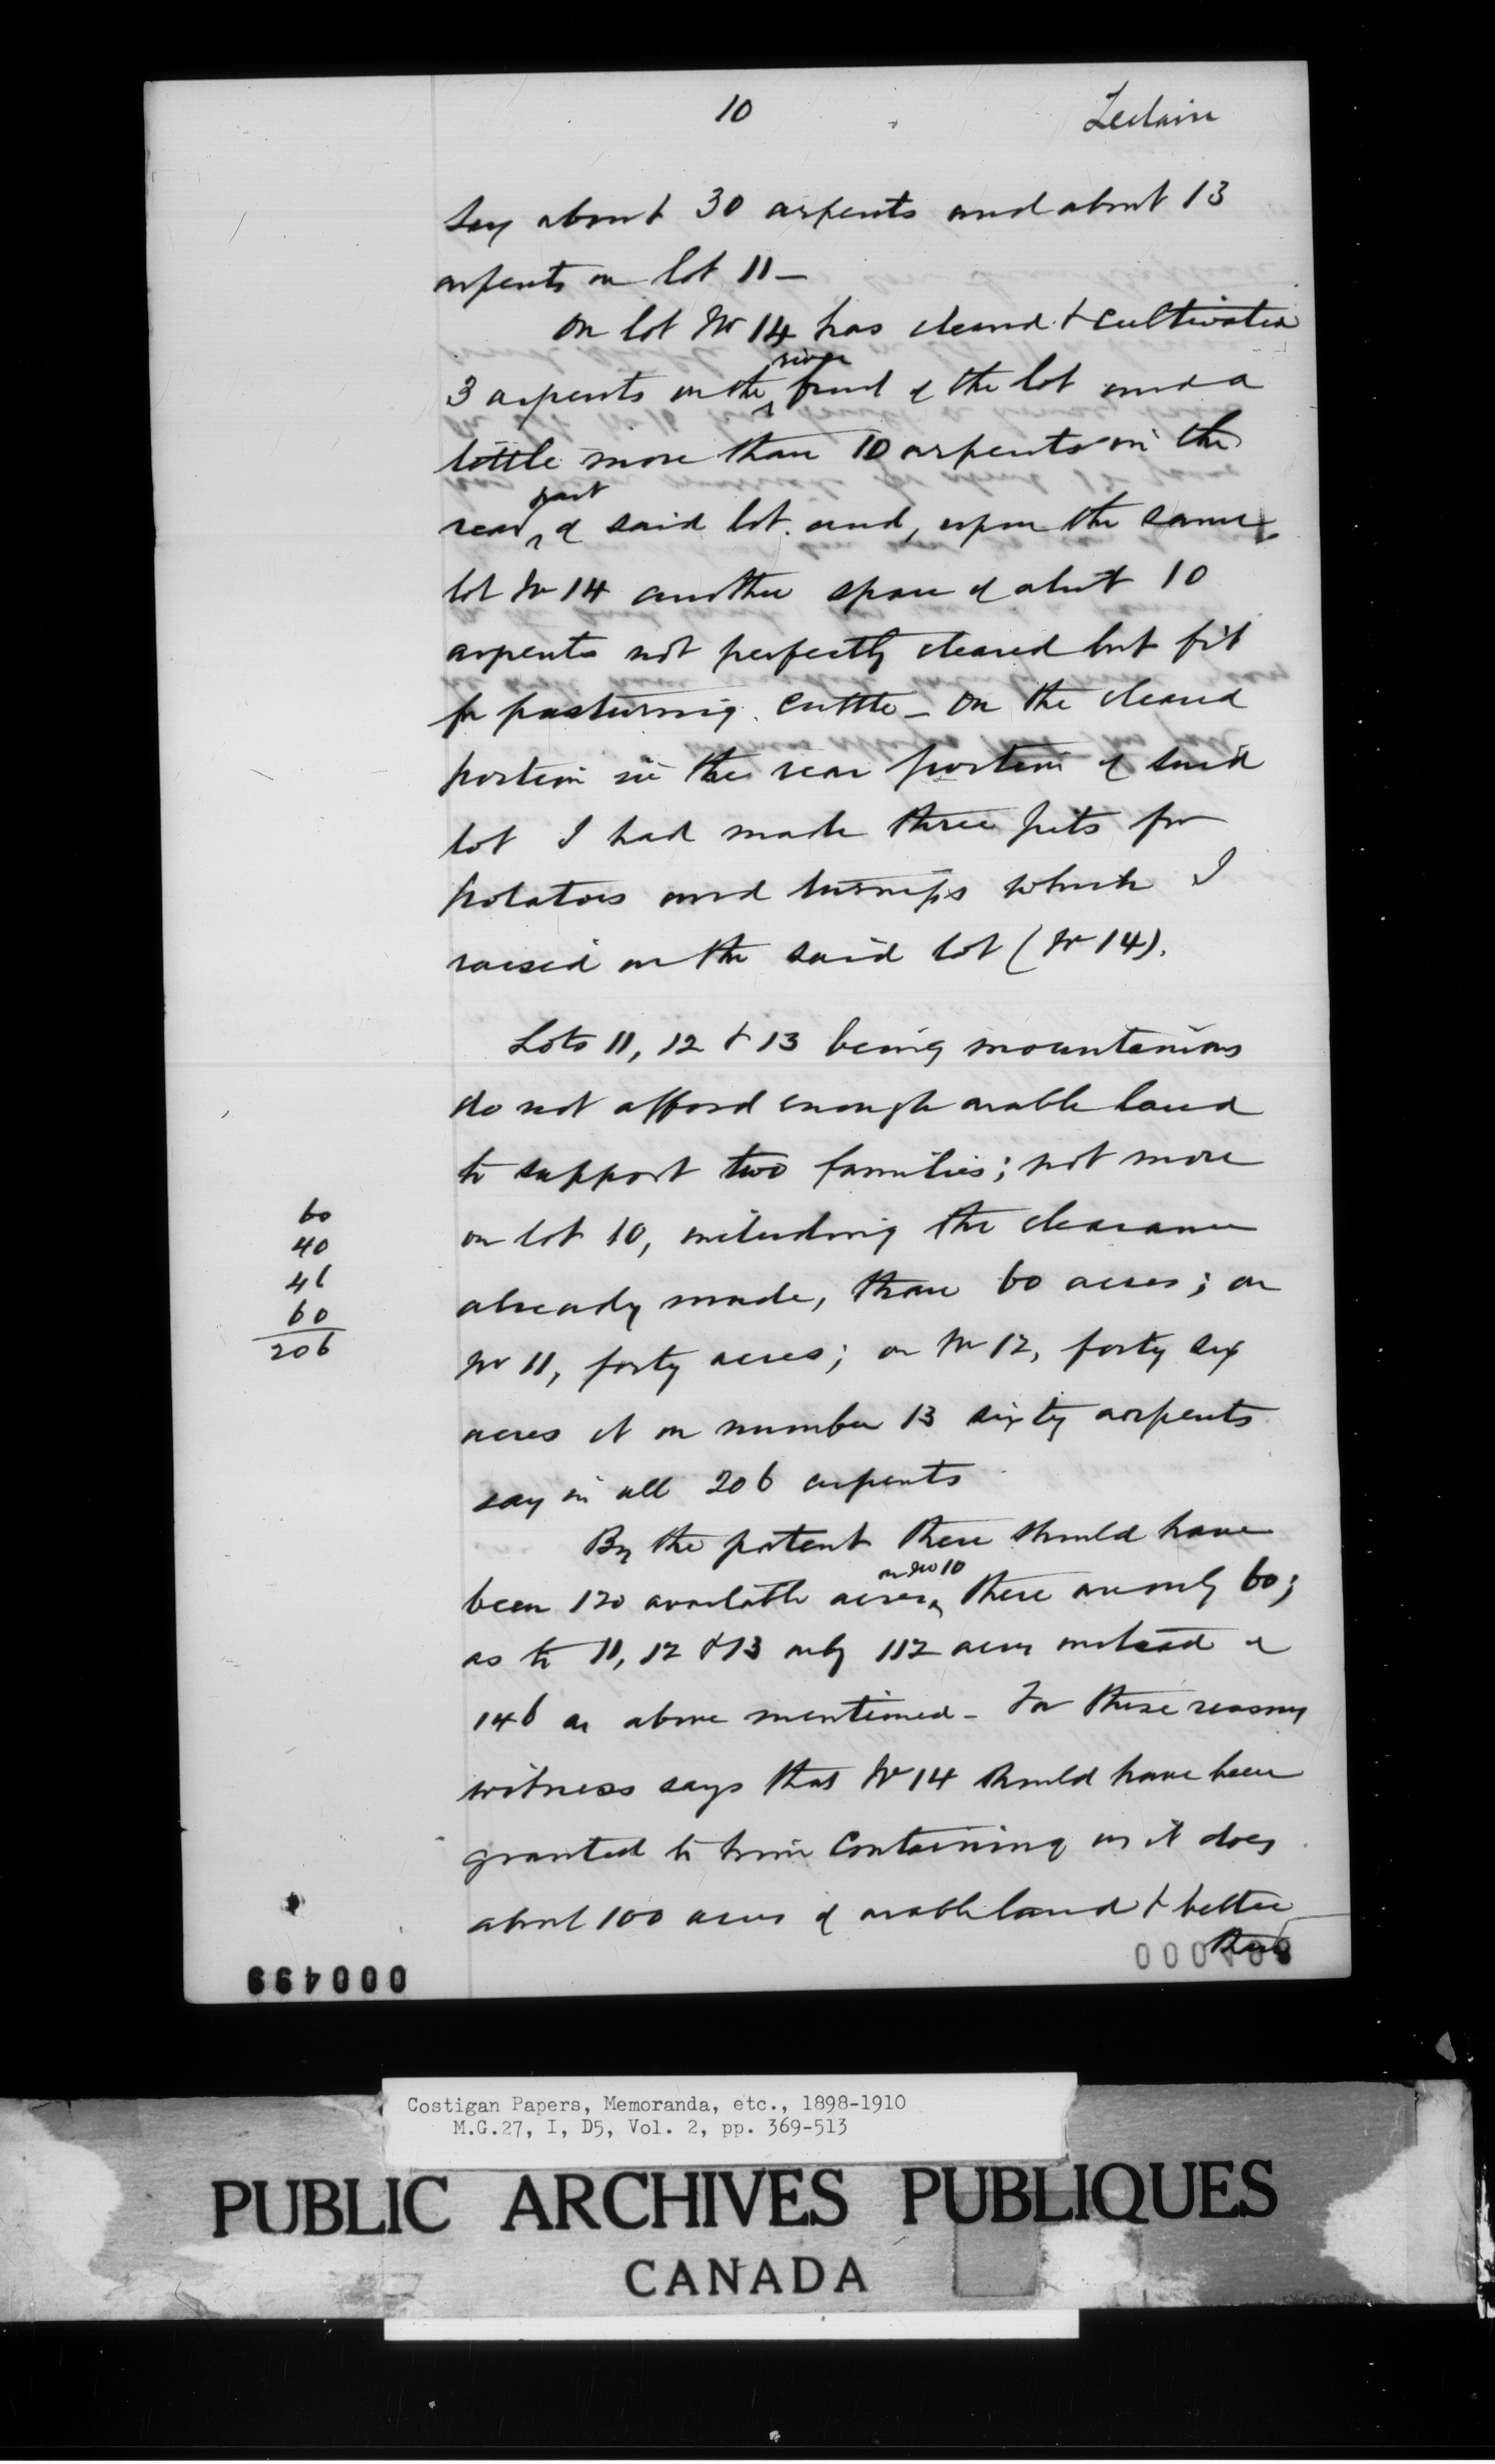 10
Leclaire
Say about 30 arpents and about 13
arpents on lot 11 —
On lot No 14 has cleared & cultivated
3 arpents on the river front of the lot and a
little more than 10 arpents on the
rear part of said lot. and, upon the same
lot No 14 another space of about 10
arpents not perfectly cleared but fit
for pasturing cattle — On the cleared
portion in the rear portion of said
lot I had made three pits for
potatoes and turnips which I
raised on the said lot (No 14).
Lots 11, 12 & 13 being mountainous
do not afford enough arable land
to support two families; not more
on lot 10, including the clearance
already made, than 60 acres; on
No 11, forty acres; on No 12, forty six
acres & on number 13 sixty arpents
say in all 206 arpents
By the patent there should have
been 120 available acres on No 10 there are only 60;
as to 11, 12 & 13 only 112 acres instead of
146 as above mentioned — For these reasons
witness says that No 14 should have been
granted to him containing as it does
about 100 acres of arable land & better
than
60
40
46
60
206
000499
000498
Costigan Papers, Memoranda, etc., 1898-1910
M.G.27, I, D5, Vol. 2, pp. 369-513
PUBLIC ARCHIVES PUBLIQUES
CANADA